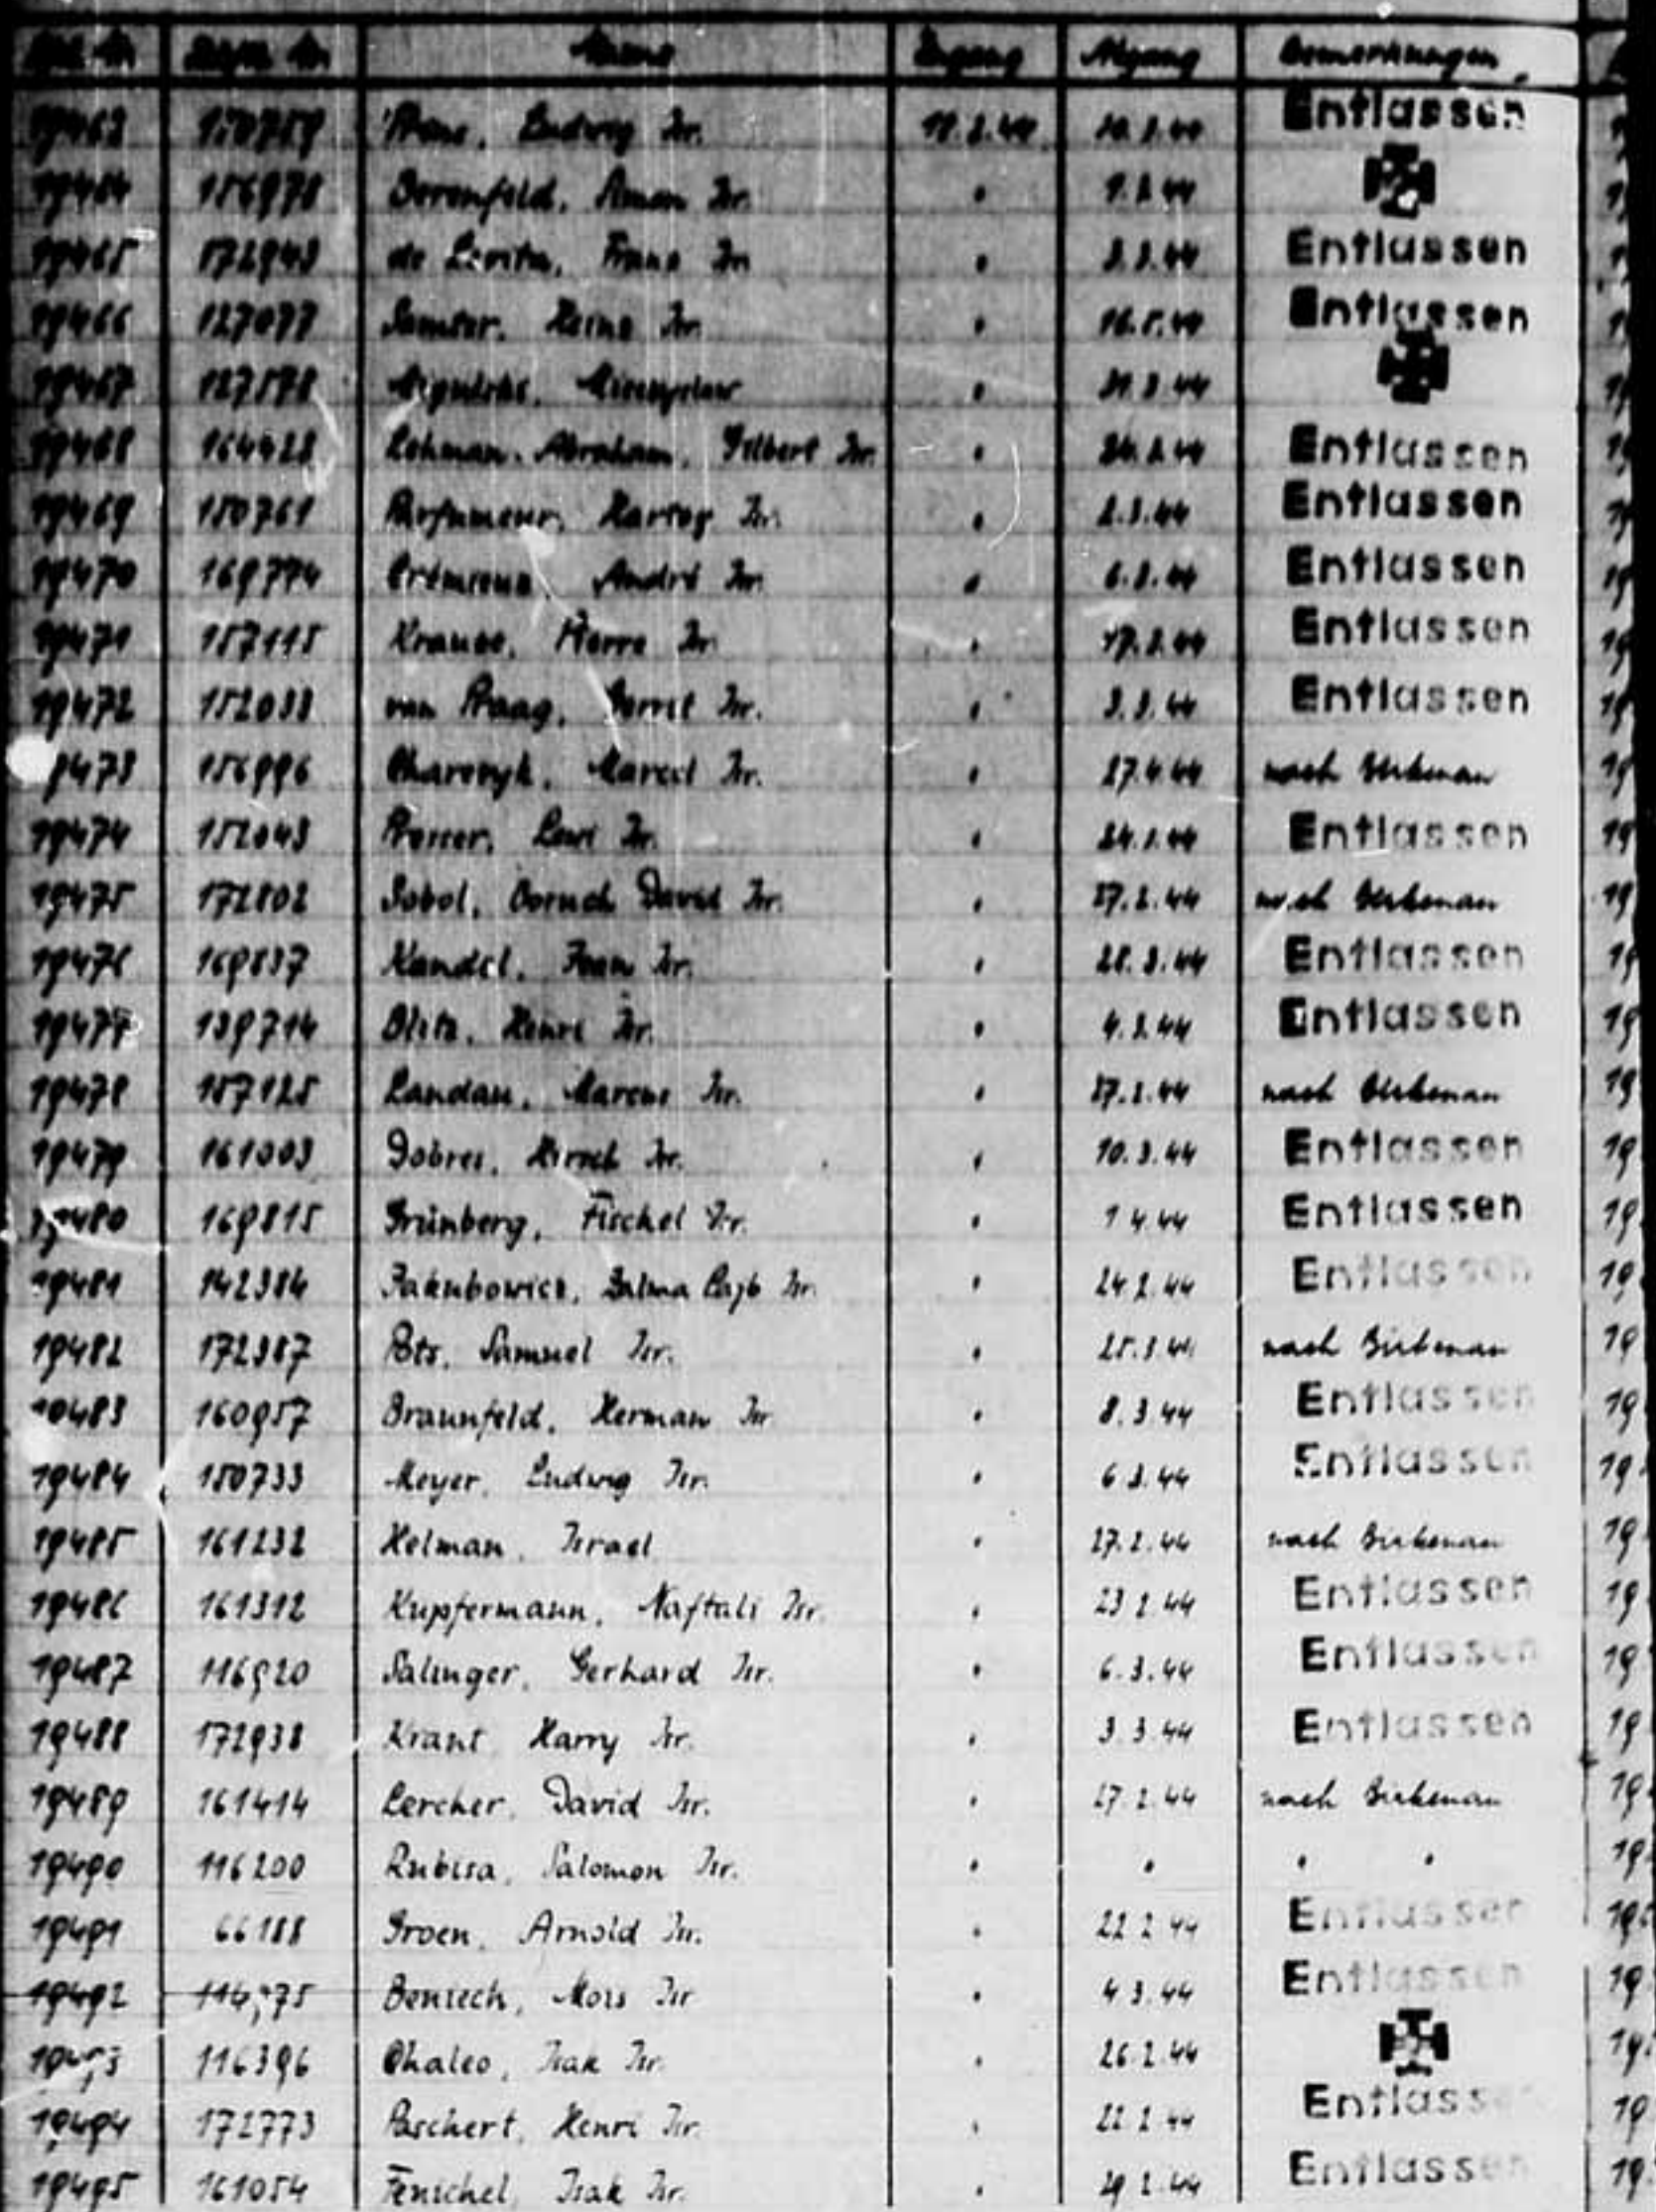 Lfd. Nr. Name Zugang Abgang Bemerkungen
19463 150759 Ludwig Isr. Entlassen
19464 156978 Berenfeld, Isr. "
19465 172943 de Levita, Franz Isr. " 3.3.44 Entlassen
19466 127077 Samter, Heinz Isr. " Entlassen
19467 127578 "
19468 164428 Lehman, Abraham, Gilbert Isr. " Entlassen
19469 150761 Parfumeur, Hartog Isr. " 2.3.44 Entlassen
19470 169774 Crémieux, André Isr. " 6.3.44 Entlassen
19471 157115 Krause, Pierre Isr. " Entlassen
19472 152033 van Praag, Gerrit Isr. " 3.3.44 Entlassen
19473 156996 Marcel Isr. " 27.4.44 nach Birkenau
19474 152043 Levi Isr. " Entlassen
19475 172802 Sobol, Boruch David Isr. " 27.2.44 nach Birkenau
19476 169837 Kandel, Isr. " 28.3.44 Entlassen
19477 139714 Blitz, Henri Isr. " 4.3.44 Entlassen
19478 157125 Landau, Marcus Isr. " 27.2.44 nach Birkenau
19479 161003 Dobres, Hirsch Isr. " 10.3.44 Entlassen
19480 169815 Grünberg, Fischel Isr. " 1.4.44 Entlassen
19481 142384 Jakubowicz, Zalma Lajb Isr. " 24.2.44 Entlassen
19482 172387 Bts, Samuel Isr. " nach Birkenau
19483 160957 Braunfeld, Herman Isr. " 8.3.44 Entlassen
19484 150733 Meyer, Ludwig Isr. " 6.3.44 Entlassen
19485 161232 Helman, Israel " 27.2.44 nach Birkenau
19486 161312 Kupfermann, Naftali Isr. " 23.2.44 Entlassen
19487 116920 Salinger, Gerhard Isr. " 6.3.44 Entlassen
19488 172938 Krant Harry Isr. " 3.3.44 Entlassen
19489 161414 Lercher, David Isr. " 27.2.44 nach Birkenau
19490 116200 Rubisa, Salomon Isr. " " " "
19491 66188 Groen, Arnold Isr. " 22.2.44 Entlassen
19492 Moïs Isr. " 4.3.44 Entlassen
19493 116396 Chaleo, Isak Isr. " 26.2.44
19494 172773 Paschert, Henri Isr. " 22.2.44 Entlassen
19495 161054 Fenichel, Isak Isr. " 29.2.44 Entlassen